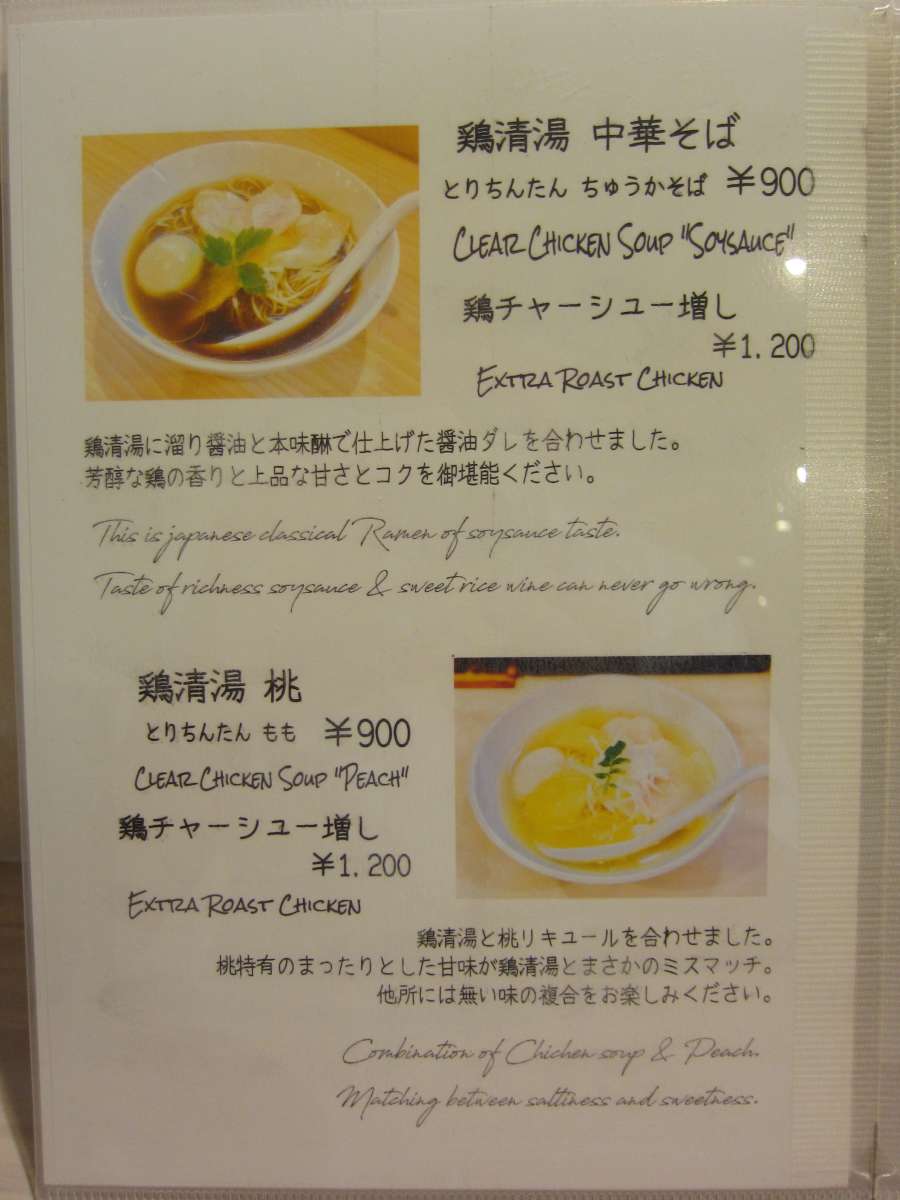 鶏清湯 中華そば
とりちんたん ちゅうかそば ¥900
CLEAR CHICKEN SOUP "SOYSAUCE"
鶏チャーシュー増し
¥1,200
EXTRA ROAST CHICKEN
鶏清湯に溜り醤油と本味醂で仕上げた醤油ダレを合わせました。
芳醇な鶏の香りと上品な甘さとコクを御堪能ください。
This is japanese classical Ramen of soysauce taste.
Taste of richness soysauce & sweet rice wine can never go wrong.
鶏清湯 桃
とりちんたん もも ¥900
CLEAR CHICKEN SOUP "PEACH"
鶏チャーシュー増し
¥1,200
EXTRA ROAST CHICKEN
鶏清湯と桃リキュールを合わせました。
桃特有のまったりとした甘味が鶏清湯とまさかのミスマッチ。
他所には無い味の複合をお楽しみください。
Combination of Chichen soup & Peach.
Matching between saltiness and sweetness.